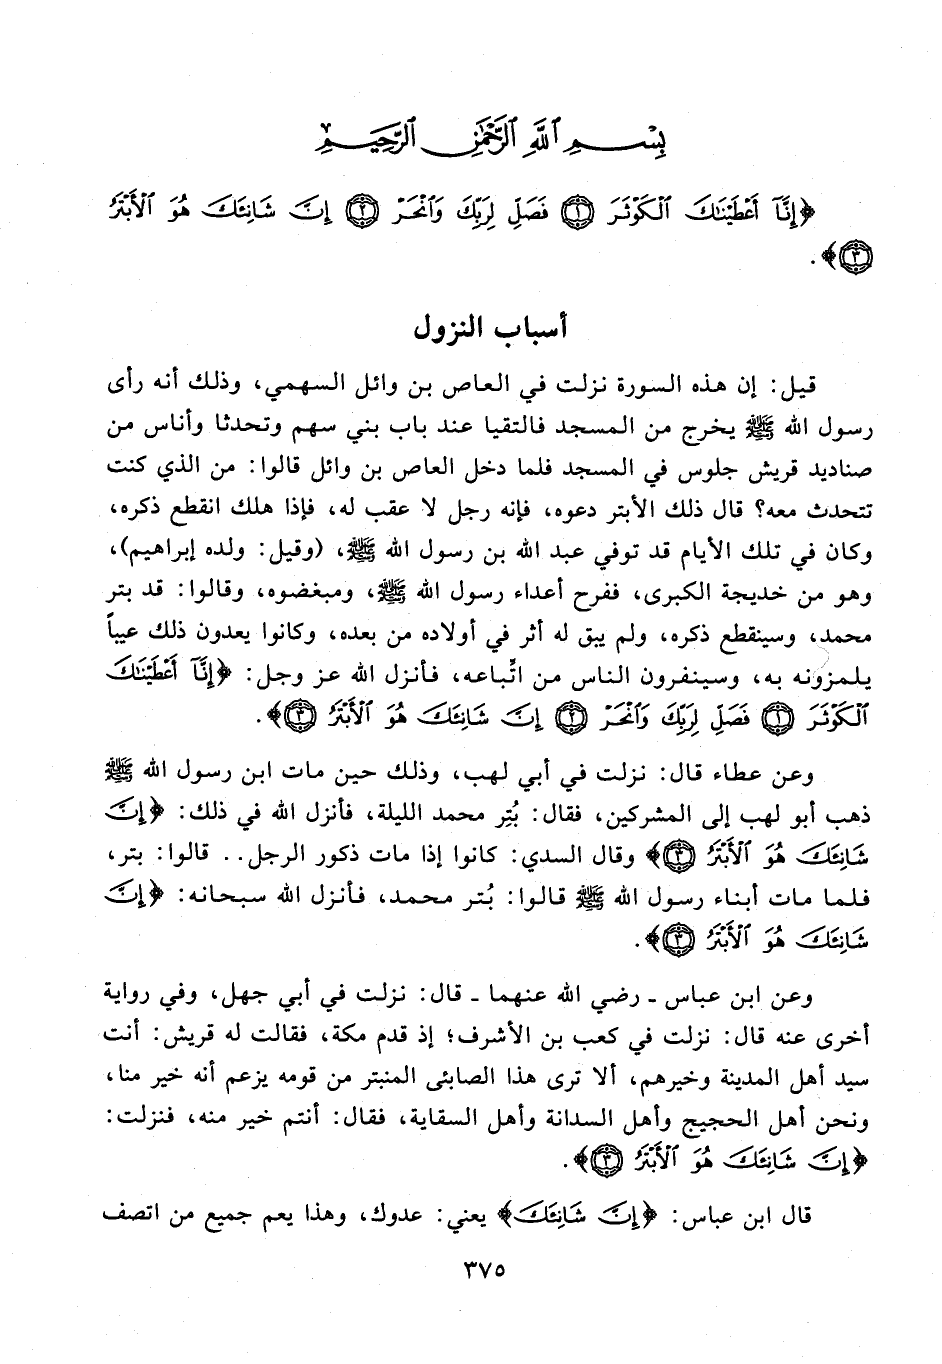 بِسْمِ ٱللَّهِ ٱلرَّحْمَٰنِ ٱلرَّحِيمِ
﴿إِنَّآ أَعْطَيْنَٰكَ ٱلْكَوْثَرَ ۝١ فَصَلِّ لِرَبِّكَ وَٱنْحَرْ ۝٢ إِنَّ شَانِئَكَ هُوَ ٱلْأَبْتَرُ
۝٣﴾.
أسباب النزول
قيل: إن هذه السورة نزلت في العاص بن وائل السهمي، وذلك أنه رأى
رسول الله ﷺ يخرج من المسجد فالتقيا عند باب بني سهم وتحدثا وأناس من
صناديد قريش جلوس في المسجد فلما دخل العاص بن وائل قالوا: من الذي كنت
تتحدث معه؟ قال ذلك الأبتر دعوه، فإنه رجل لا عقب له، فإذا هلك انقطع ذكره،
وكان في تلك الأيام قد توفي عبد الله بن رسول الله ﷺ، (وقيل: ولده إبراهيم)،
وهو من خديجة الكبرى، ففرح أعداء رسول الله ﷺ، ومبغضوه، وقالوا: قد بتر
محمد، وسينقطع ذكره، ولم يبق له أثر في أولاده من بعده، وكانوا يعدون ذلك عيباً
يلمزونه به، وسينفرون الناس من اتِّباعه، فأنزل الله عز وجل: ﴿إِنَّآ أَعْطَيْنَٰكَ
ٱلْكَوْثَرَ ۝١ فَصَلِّ لِرَبِّكَ وَٱنْحَرْ ۝٢ إِنَّ شَانِئَكَ هُوَ ٱلْأَبْتَرُ ۝٣﴾.
وعن عطاء قال: نزلت في أبي لهب، وذلك حين مات ابن رسول الله ﷺ
ذهب أبو لهب إلى المشركين، فقال: بُتِر محمد الليلة، فأنزل الله في ذلك: ﴿إِنَّ
شَانِئَكَ هُوَ ٱلْأَبْتَرُ ۝٣﴾ وقال السدي: كانوا إذا مات ذكور الرجل.. قالوا: بتر،
فلما مات أبناء رسول الله ﷺ قالوا: بُتر محمد، فأنزل الله سبحانه: ﴿إِنَّ
شَانِئَكَ هُوَ ٱلْأَبْتَرُ ۝٣﴾.
وعن ابن عباس ـ رضي الله عنهما ـ قال: نزلت في أبي جهل، وفي رواية
أخرى عنه قال: نزلت في كعب بن الأشرف؛ إذ قدم مكة، فقالت له قريش: أنت
سيد أهل المدينة وخيرهم، ألا ترى هذا الصابئى المنبتر من قومه يزعم أنه خير منا،
ونحن أهل الحجيج وأهل السدانة وأهل السقاية، فقال: أنتم خير منه، فنزلت:
﴿إِنَّ شَانِئَكَ هُوَ ٱلْأَبْتَرُ ۝٣﴾.
قال ابن عباس: ﴿إِنَّ شَانِئَكَ﴾ يعني: عدوك، وهذا يعم جميع من اتصف
٣٧٥